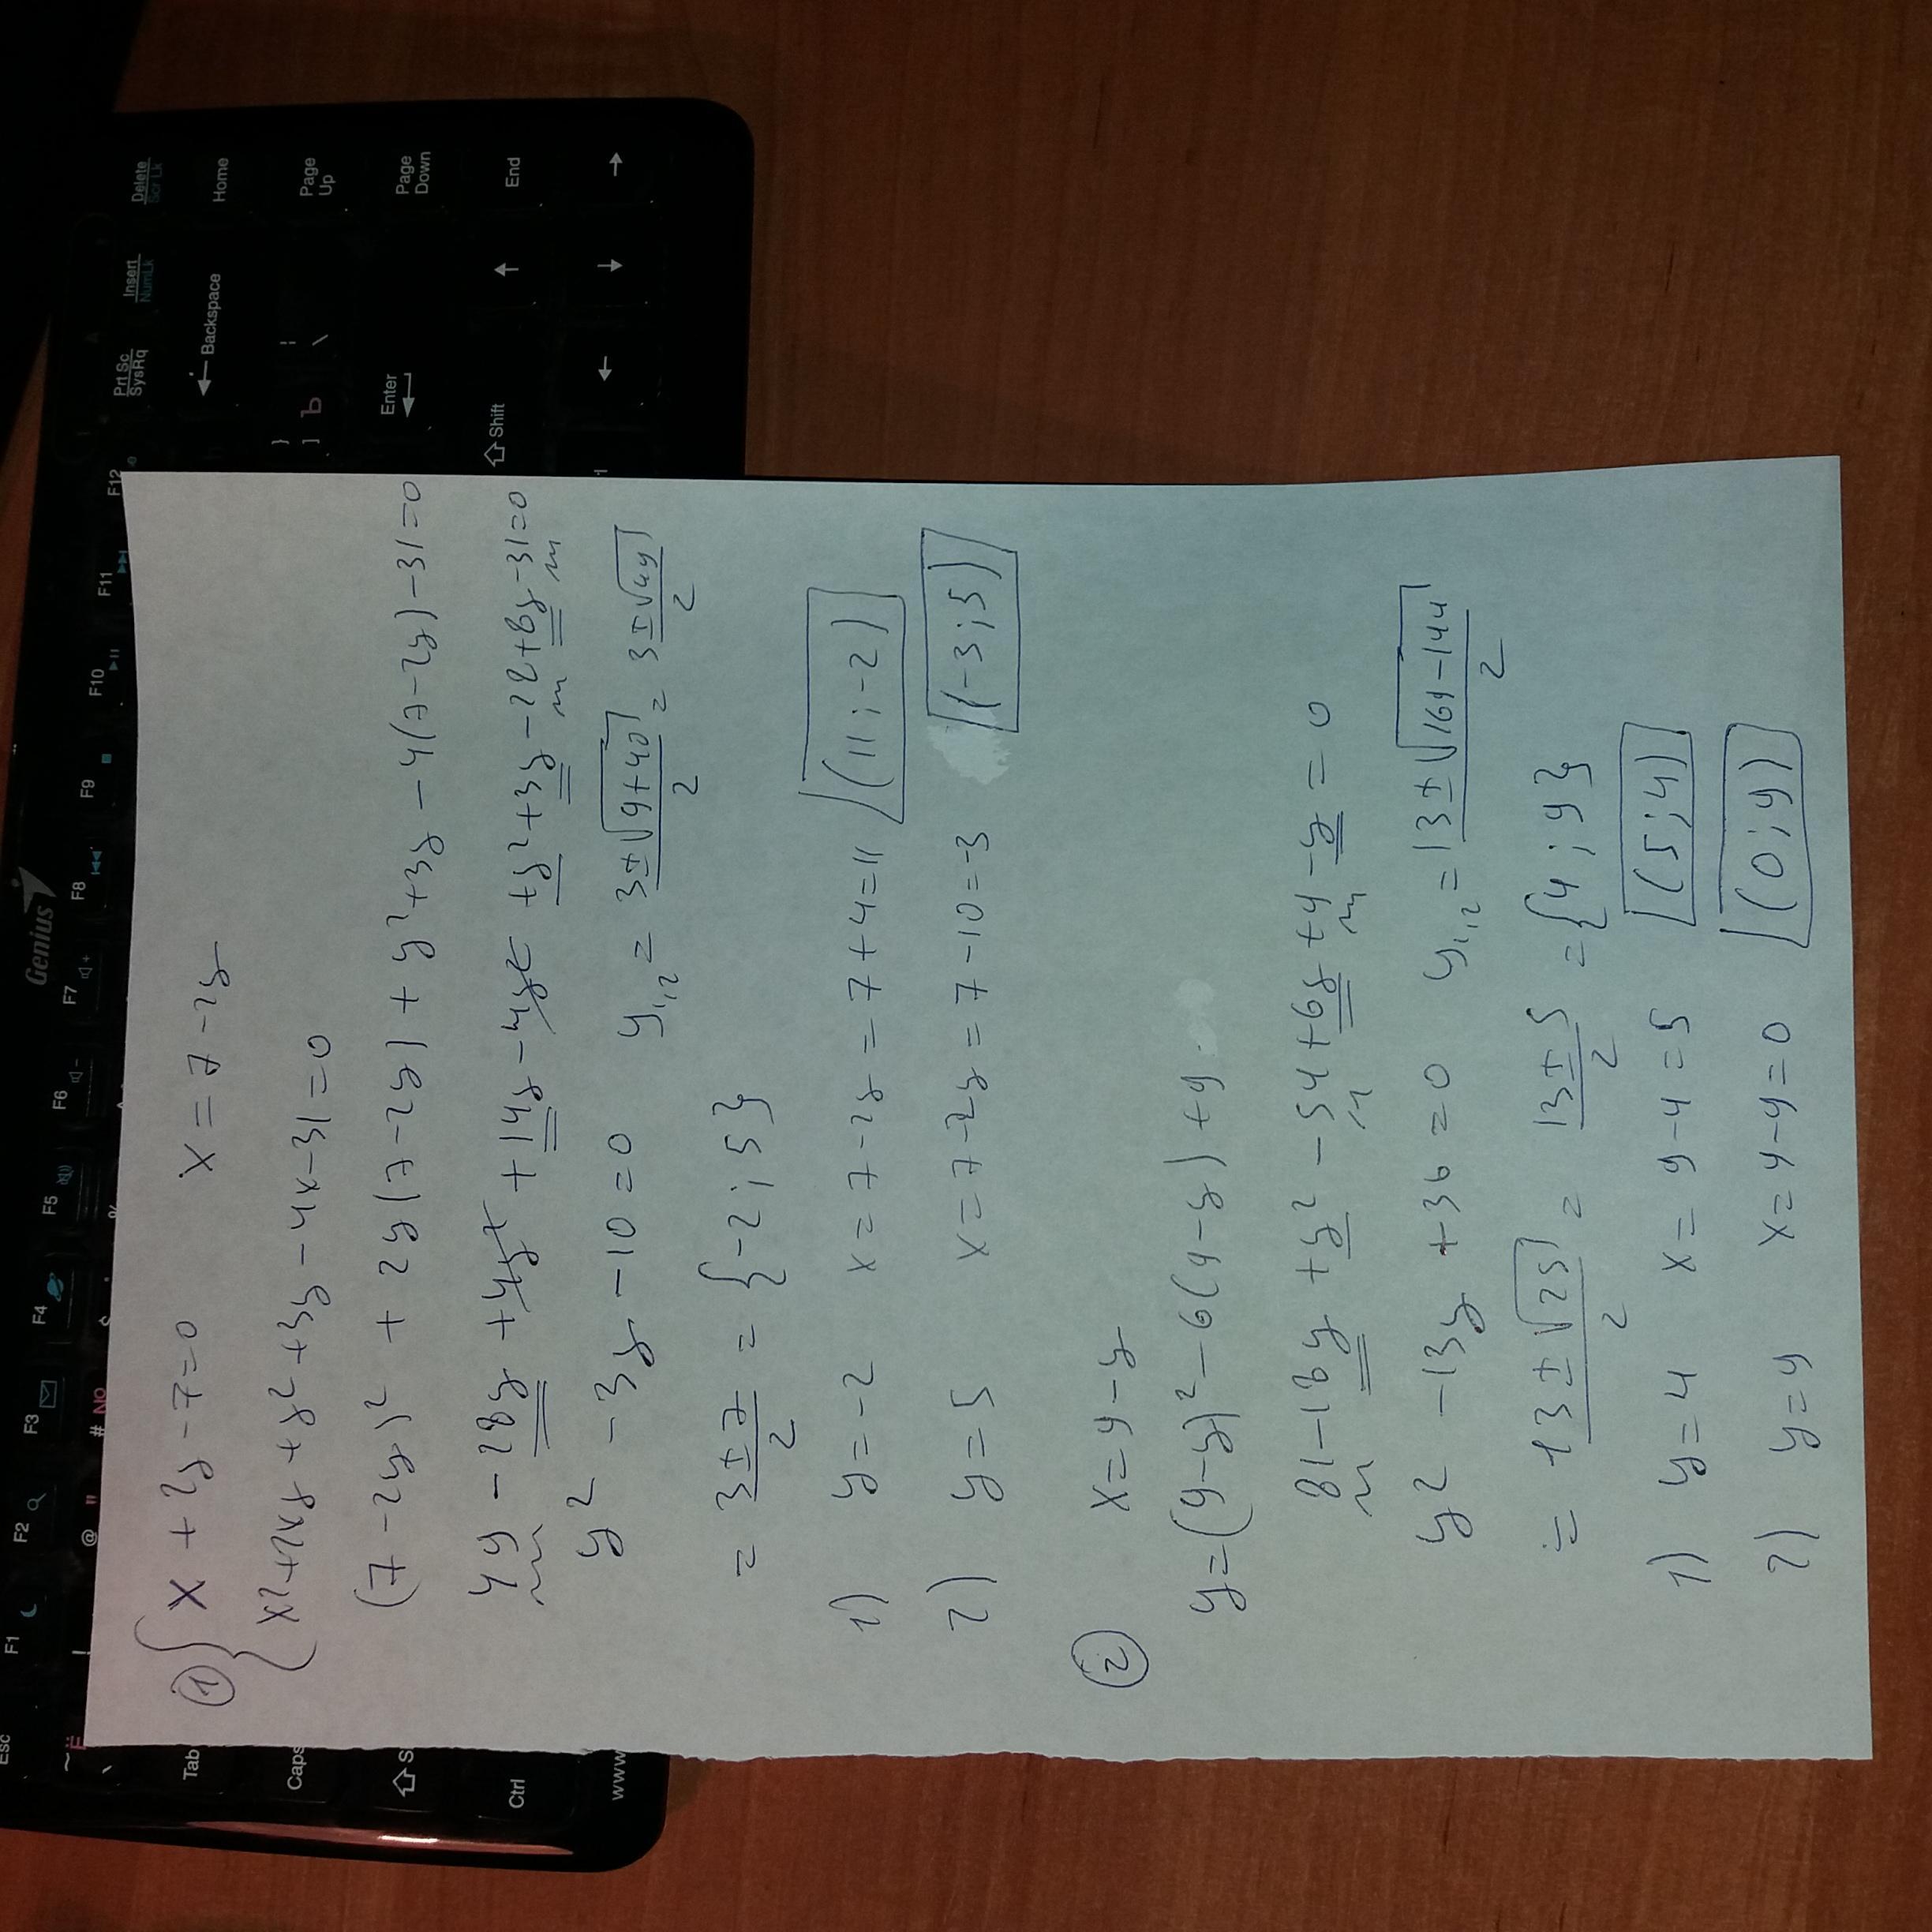 ① { x + 2y - 7 = 0    x = 7 - 2y
x² + 2xy + y² + 3y - 4x - 31 = 0
(7 - 2y)² + 2y(7 - 2y) + y² + 3y - 4(7 - 2y) - 31 = 0
49 - 28y + 4y² + 14y - 4y² + y² + 3y - 28 + 8y - 31 = 0
y² - 3y - 10 = 0    y₁,₂ = (3 ± √(9 + 40))/2 = (3 ± √49)/2
= (3 ± 7)/2 = {-2 ; 5}
1) y = -2    x = 7 - 2y = 7 + 4 = 11    (11 ; -2)
2) y = 5    x = 7 - 2y = 7 - 10 = -3    (-3 ; 5)
② x = 9 - y
y = (9 - y)² - 6(9 - y) + 9
81 - 18y + y² - 54 + 6y + 9 - y = 0
y² - 13y + 36 = 0    y₁,₂ = (13 ± √(169 - 144))/2
= (13 ± √25)/2 = (13 ± 5)/2 = {4 ; 9}
1) y = 4    x = 9 - 4 = 5    (5 ; 4)
2) y = 9    x = 9 - 9 = 0    (0 ; 9)
Genius
Esc F1 F2 F3 F4 F5 F6 F7 F8 F9 F10 F11 F12 Prt Sc Insert Delete
SysRq NumLk Scr Lk
~ Ё ! @ " # № $ ; % ← Backspace Home
Tab } ] Ъ | \ Page Up
Caps Enter Page Down
⇧ S ⇧ Shift ↑ End
Ctrl ← ↓ →
www